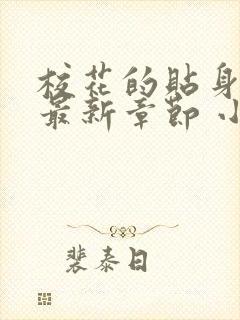 校花的贴身
最新章節 小
裴泰日